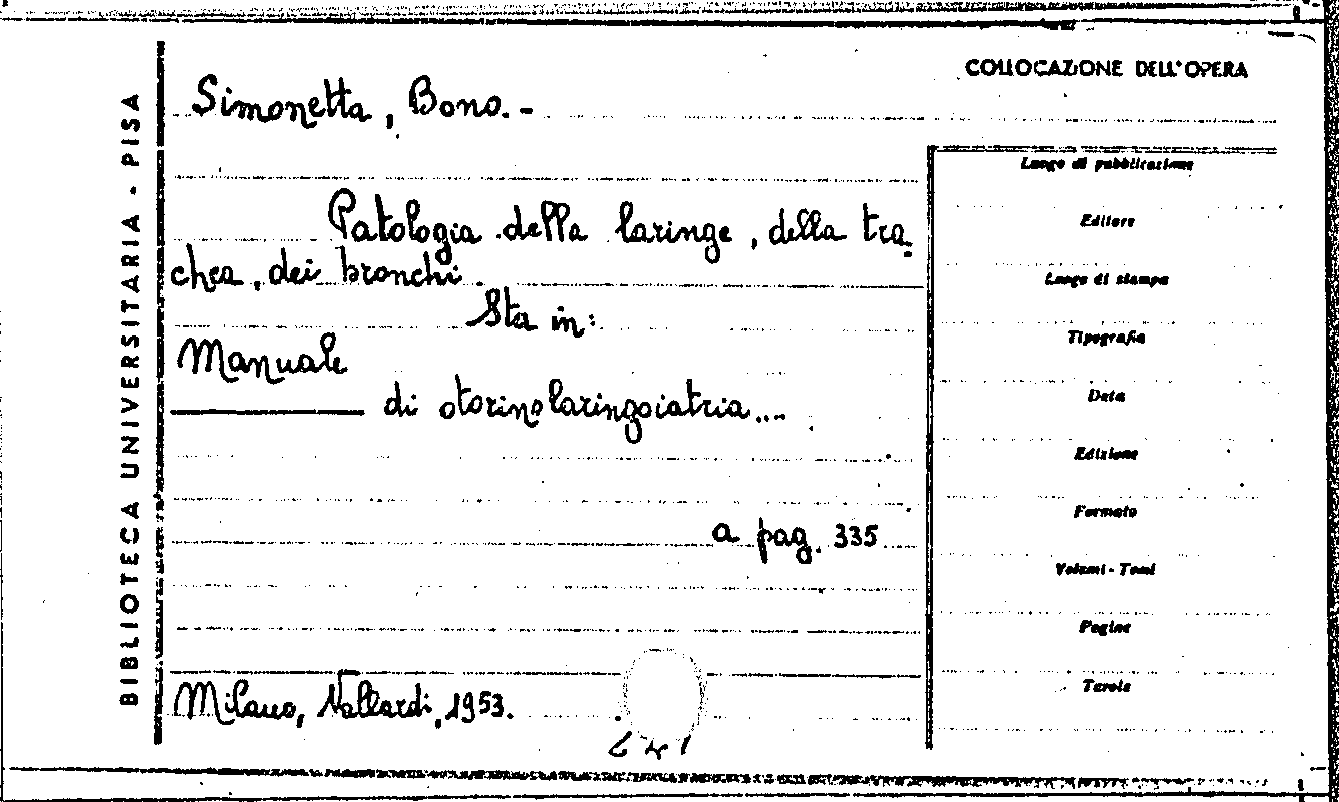 BIBLIOTECA UNIVERSITARIA - PISA
COLLOCAZIONE DELL'OPERA
Simonetta, Bono. -
Patologia della laringe, della tra-
chea, dei bronchi.
Sta in:
Manuale
di otorinolaringoiatria....
a pag. 335
Milano, Vallardi, 1953.
Luogo di pubblicazione
Editore
Luogo di stampa
Tipografia
Data
Edizione
Formato
Volumi - Tomi
Pagine
Tavole